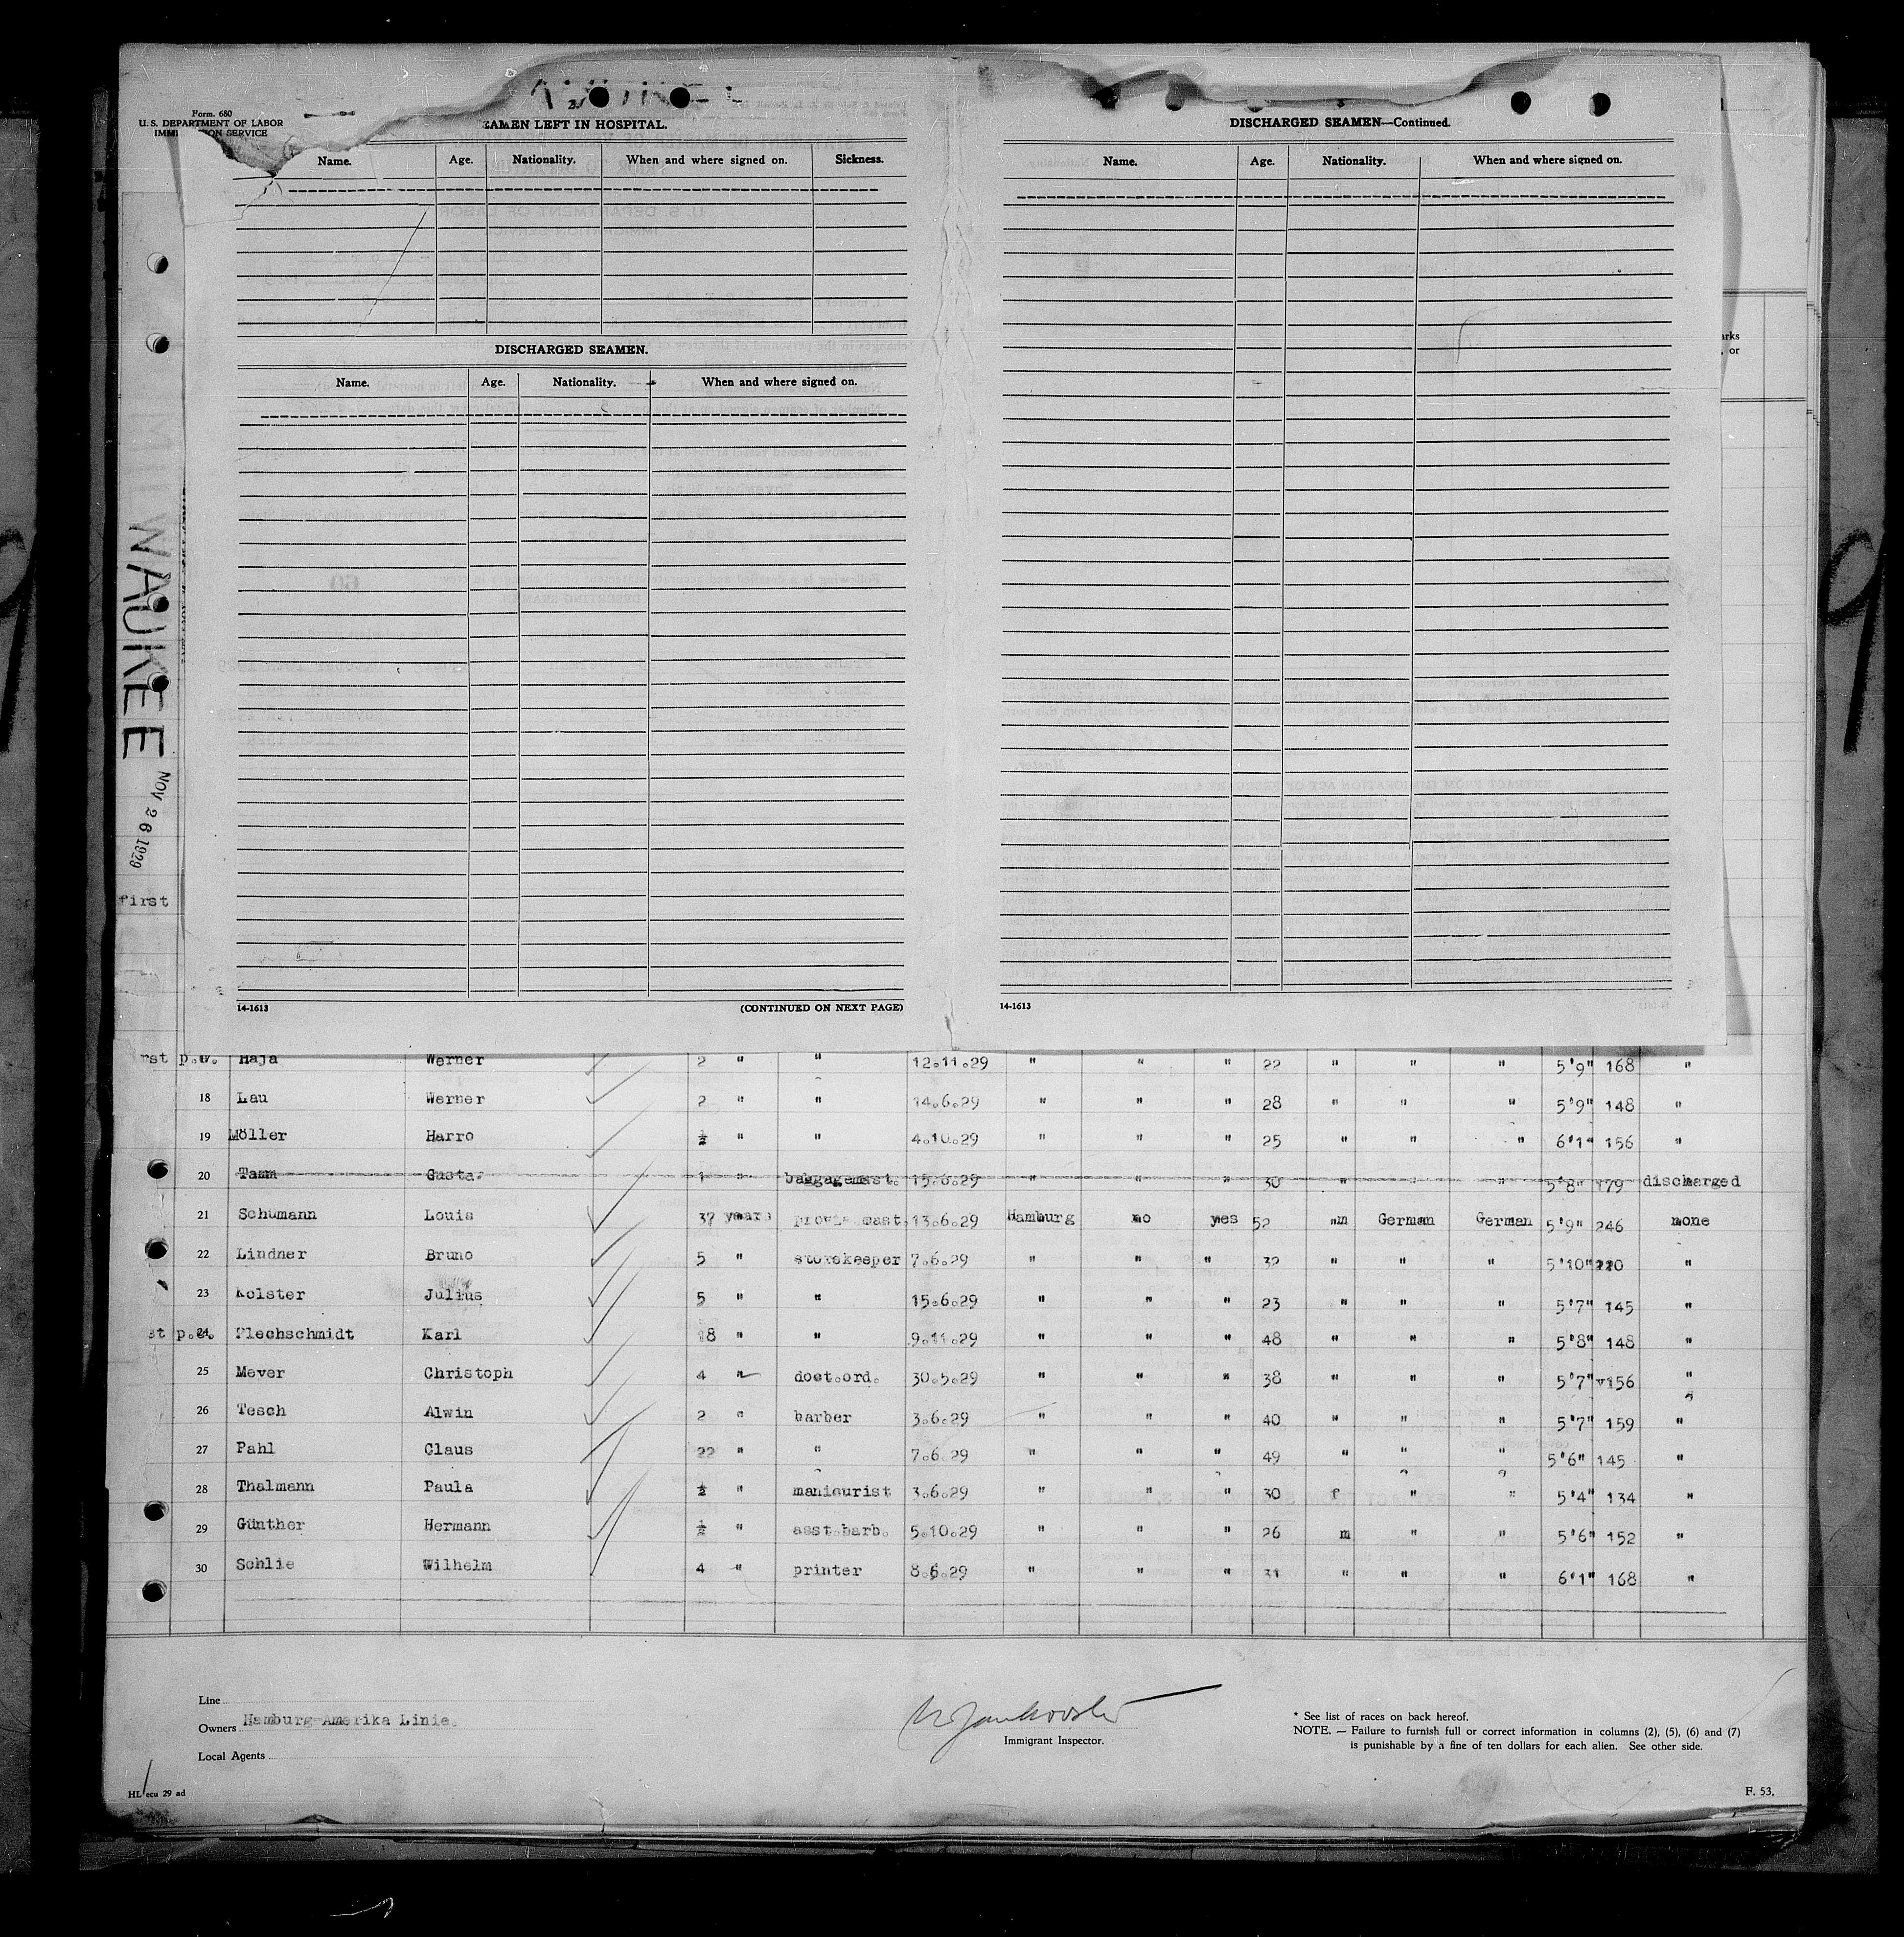 Form. 680
U. S. DEPARTMENT OF LABOR
SEAMEN LEFT IN HOSPITAL.
Name. Age. Nationality. When and where signed on. Sickness.
DISCHARGED SEAMEN.
Name. Age. Nationality. When and where signed on.
14-1613 (CONTINUED ON NEXT PAGE)
DISCHARGED SEAMEN—Continued.
Name. Age. Nationality. When and where signed on.
14-1613
arks
, or
WAUKEE
NOV 26 1929
first
rst p.v. Haja Werner 2 " " 12.11.29 " " " 22 " " " 5'9" 168 "
18 Lau Werner 2 " " 14.6.29 " " " 28 " " " 5'9" 148 "
19 Möller Harro ½ " " 4.10.29 " " " 25 " " " 6'1" 156 "
20 Tamm Gustaf 1 " baggagemast. 15.6.29 " " " 30 " " " 5'8" 179 discharged
21 Schumann Louis 37 years provis.mast. 13.6.29 Hamburg no yes 52 m German German 5'9" 246 none
22 Lindner Bruno 5 " storekeeper 7.6.29 " " " 32 " " " 5'10" "
23 Kolster Julius 5 " " 15.6.29 " " " 23 " " " 5'7" 145 "
24 Karl 18 " " 9.11.29 " " " 48 " " " 5'8" 148 "
25 Meyer Christoph 4 " doct.ord. 30.5.29 " " " 38 " " " 5'7" 156 "
26 Tesch Alwin 2 " barber 3.6.29 " " " 40 " " " 5'7" 159 "
27 Pahl Claus 22 " " 7.6.29 " " " 49 " " " 5'6" 145 "
28 Thalmann Paula ½ " manicurist 3.6.29 " " " 30 f " " 5'4" 134 "
29 Günther Hermann ½ " asst.barb. 5.10.29 " " " 26 m " " 5'6" 152 "
30 Schlie Wilhelm 4 " printer 8.6.29 " " " 31 " " " 6'1" 168 "
Line
Owners Hamburg-Amerika Linie.
Local Agents
Immigrant Inspector.
* See list of races on back hereof.
NOTE. — Failure to furnish full or correct information in columns (2), (5), (6) and (7)
is punishable by a fine of ten dollars for each alien. See other side.
HL ecu 29 ad
F. 53.